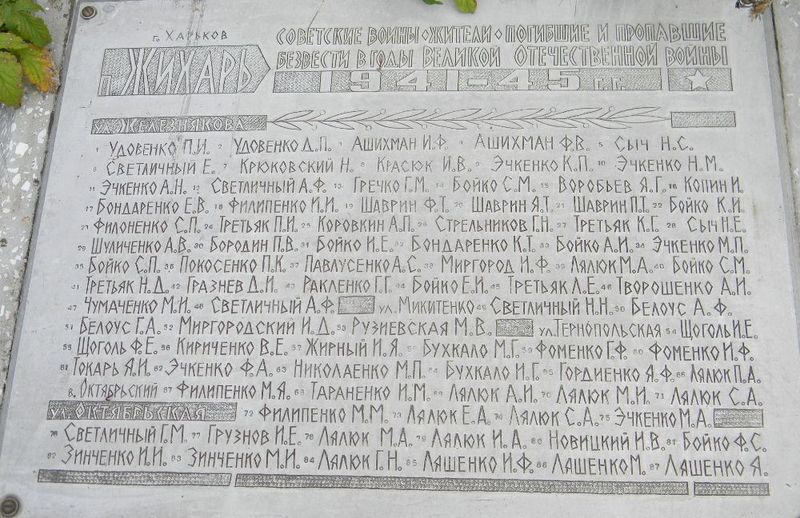 г. Харьков
п. Жихарь
Советские воины - жители - погибшие и пропавшие
безвести в годы Великой Отечественной войны
1941-45 г.г.
ул. Железнякова
1 Удовенко П.И. 2 Удовенко Д.П. 3 Ашихман И.Ф. 4 Ашихман Ф.В. 5 Сыч Н.С.
6 Светличный Е. 7 Крюковский Н. 8 Красюк И.В. 9 Эчкенко К.П. 10 Эчкенко Н.М.
11 Эчкенко А.Н. 12 Светличный А.Ф. 13 Гречко Г.М. 14 Бойко С.М. 15 Воробьев Я.Г. 16 Копин И.
17 Бондаренко Е.В. 18 Филипенко И.И. 19 Шаврин Ф.Т. 20 Шаврин Я.Т. 21 Шаврин П.Т. 22 Бойко К.И.
23 Филоненко С.П. 24 Третьяк П.И. 25 Коровкин А.П. 26 Стрельников Г.Н. 27 Третьяк К.Г. 28 Сыч Н.Е.
29 Шуличенко А.В. 30 Бородин П.В. 31 Бойко И.Е. 32 Бондаренко К.Т. 33 Бойко А.И. 34 Эчкенко М.П.
35 Бойко С.П. 36 Покосенко П.К. 37 Павлусенко А.С. 38 Миргород И.Ф. 39 Лялюк М.А. 40 Бойко С.М.
41 Третьяк Н.Д. 42 Гразнев Д.И. 43 Ракленко Г.Г. 44 Бойко Е.И. 45 Третьяк Л.Е. 46 Творошенко А.И.
47 Чумаченко М.И. 48 Светличный А.Ф. ул. Микитенко 49 Светличный Н.Н. 50 Белоус А.Ф.
51 Белоус Г.А. 52 Миргородский И.Д. 53 Рузиевская М.В. ул. Тернопольская 54 Щоголь И.Е.
55 Щоголь Ф.Е. 56 Кириченко В.Е. 57 Жирный И.Я. 58 Бухкало М.Г. 59 Фоменко Г.Ф. 60 Фоменко И.Ф.
61 Токарь Я.И. 62 Эчкенко Ф.А. 63 Николаенко М.П. 64 Бухкало И.Г. 65 Гордиенко Я.Ф. 66 Лялюк П.А.
в. Октябрьский 67 Филипенко М.Я. 68 Тараненко И.М. 69 Лялюк А.И. 70 Лялюк М.И. 71 Лялюк С.А.
ул. Октябрьская 72 Филипенко М.М. 73 Лялюк Е.А. 74 Лялюк С.А. 75 Эчкенко М.А.
76 Светличный Г.М. 77 Грузнов И.Е. 78 Лялюк М.А. 79 Лялюк И.А. 80 Новицкий И.В. 81 Бойко Ф.С.
82 Зинченко И.И. 83 Зинченко М.И. 84 Лялюк Г.Н. 85 Лашенко И.Ф. 86 Лашенко М. 87 Лашенко Я.